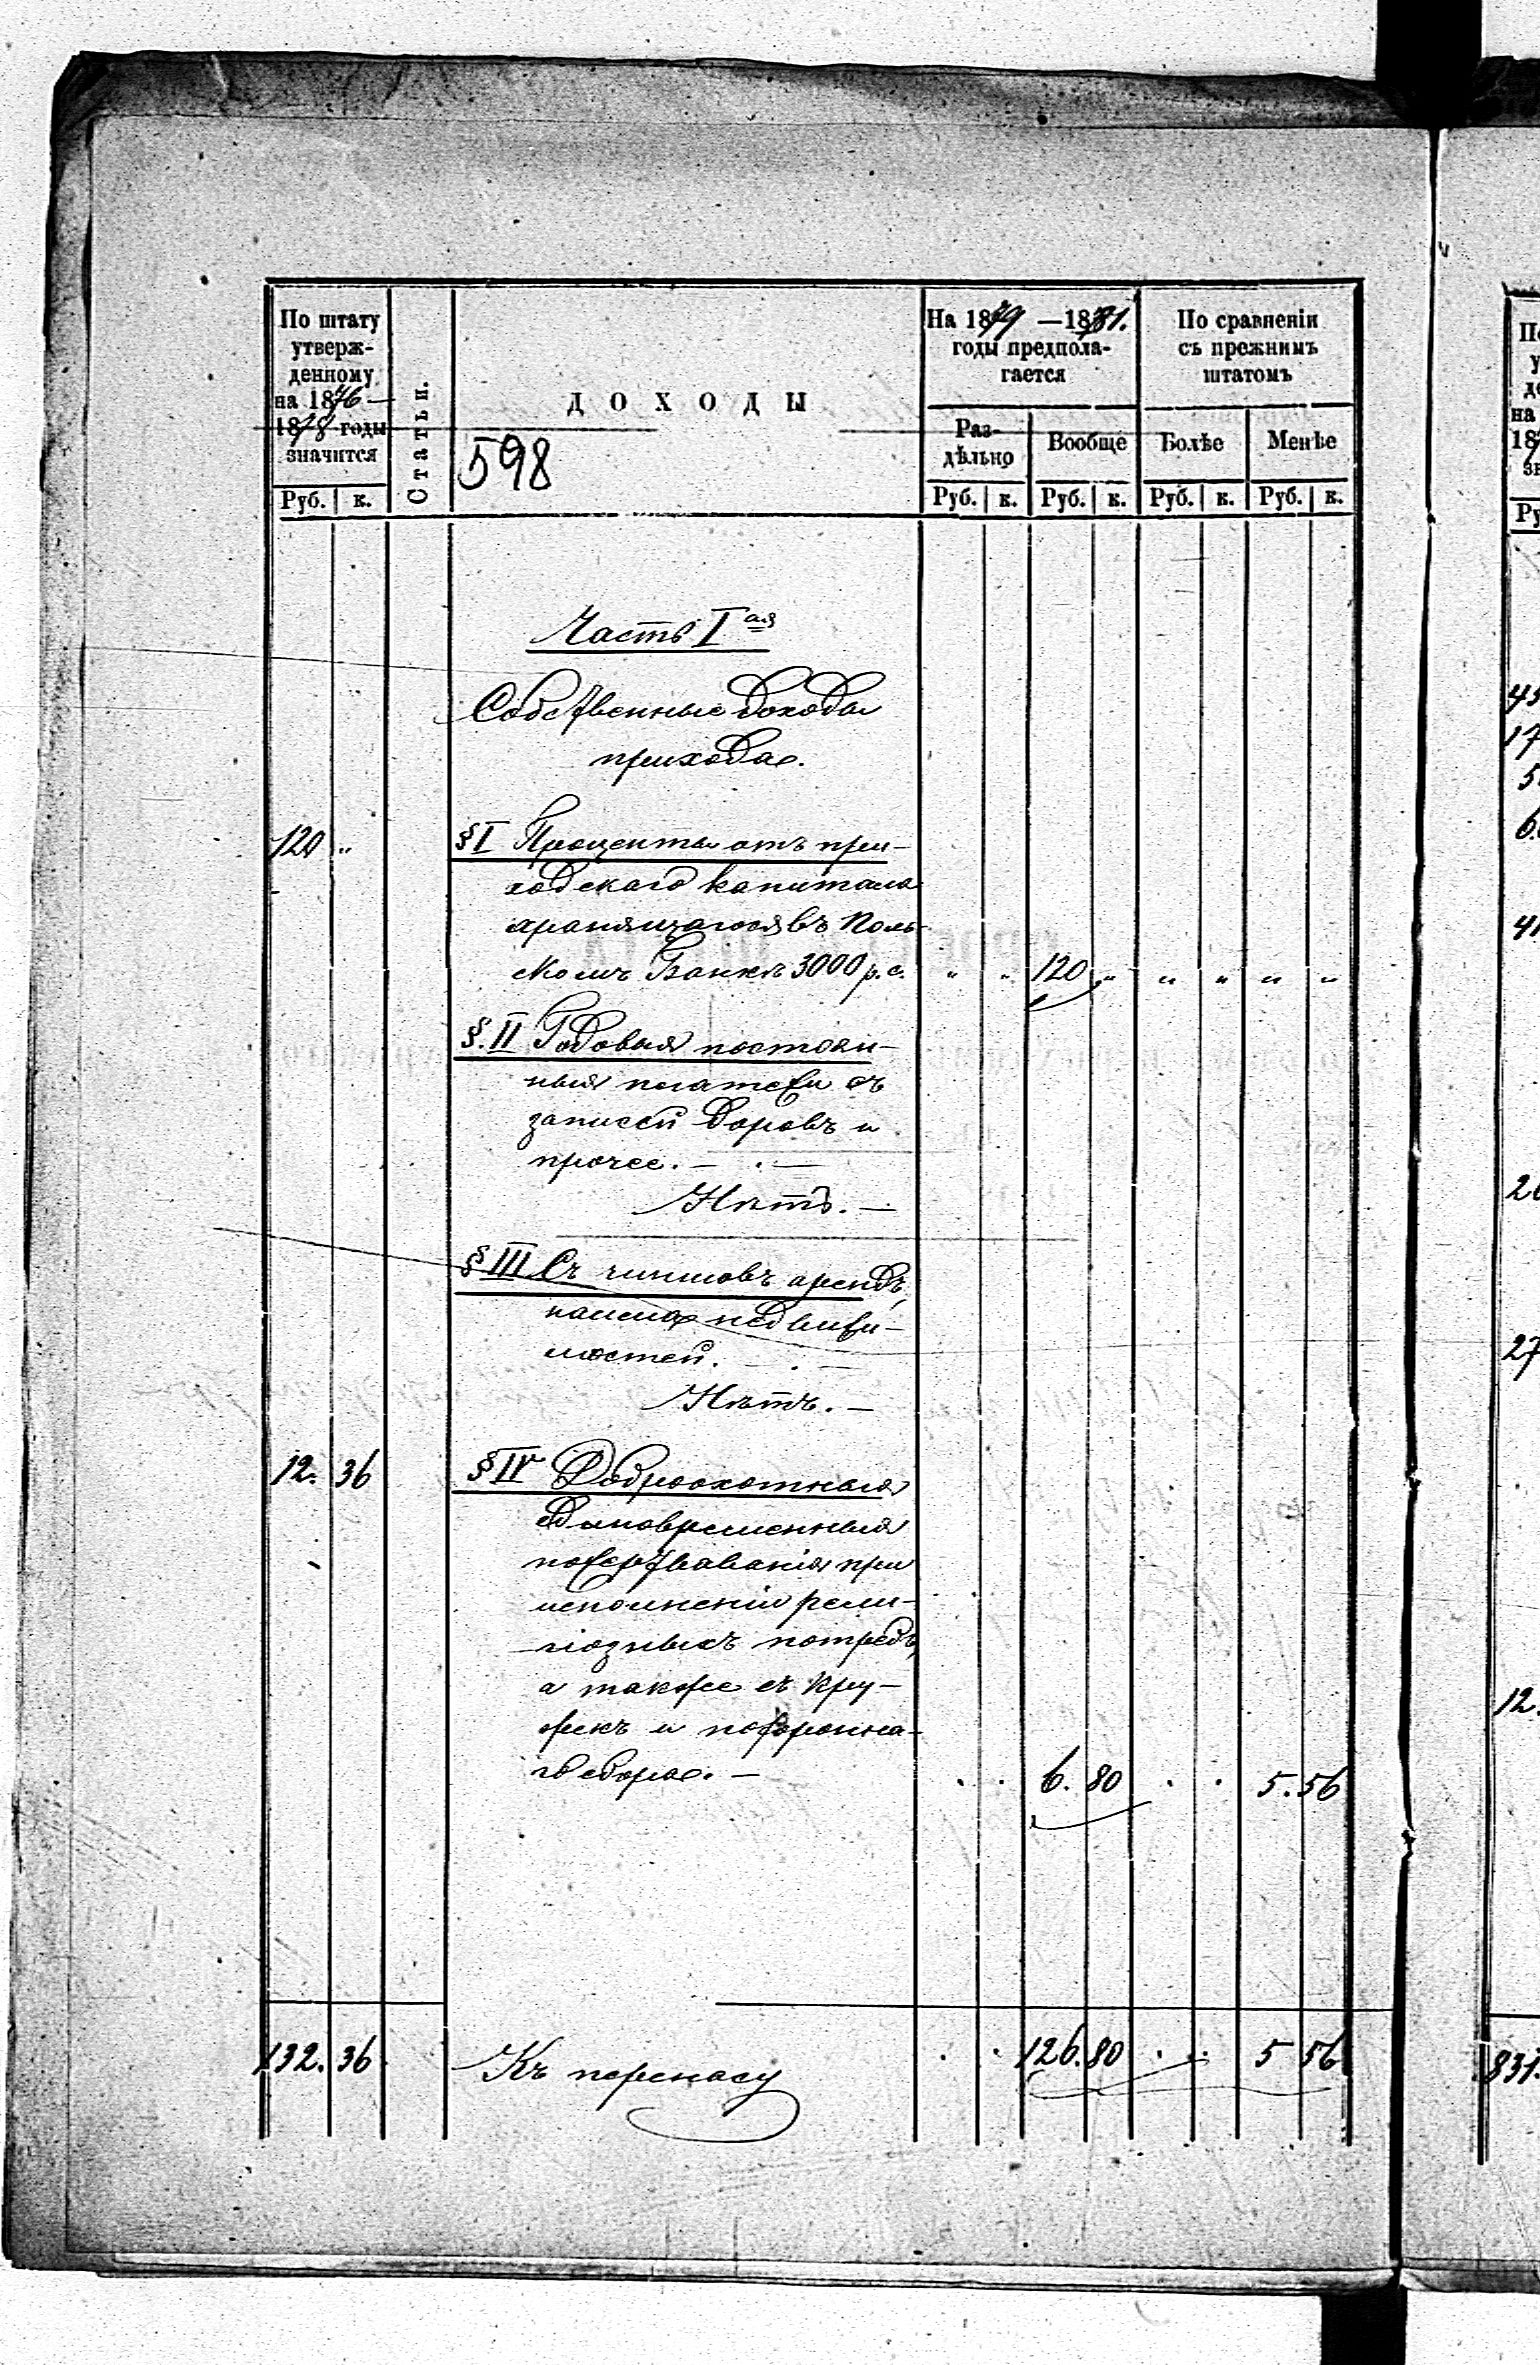 По штату
утверж-
денному
на 1876 —
1878 годы
значится
Руб. к.
Статьи.
ДОХОДЫ
598
На 1879 — 1881.
годы предпола-
гается
Раз-
дѣльно
Вообще
Руб. к. Руб. к.
По сравненіи
съ прежнимъ
штатомъ
Болѣе Менѣе
Руб. к. Руб. к.
Часть Iая
Собственные доходы
прихода.
120 „ § I Проценты отъ при-
ходскаго капитала
хранящагося въ Поль-
скомъ Банкѣ 3000 р. с. „ „ 120 „ „ „ „ „
§. II Годовыя постоян-
ныя платежи съ
записей даровъ и
прочее. — . —
Нѣтъ. —
§ III Съ чиншовъ арендъ,
найма недвижи-
мостей. — . —
Нѣтъ. —
12. 36 § IV Доброохотныя
единовременныя
пожертвованія при
исполненіи рели-
гіозныхъ потребъ,
а также съ кру-
жекъ и похоронна-
го сбора. — . . 6. 80 . . 5. 56
132. 36 Къ переносу . . 126. 80 . . 5 56
По
у
де
на
18
зн
Ру
45
17
5
6.
41
26
27
12.
831.